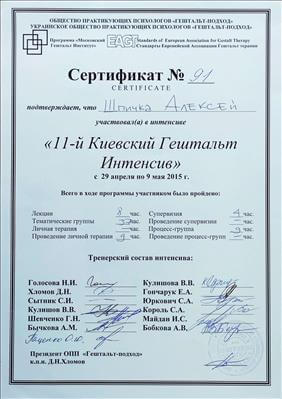 ОБЩЕСТВО ПРАКТИКУЮЩИХ ПСИХОЛОГОВ «ГЕШТАЛЬТ-ПОДХОД»
УКРАИНСКОЕ ОБЩЕСТВО ПРАКТИКУЮЩИХ ПСИХОЛОГОВ «ГЕШТАЛЬТ-ПОДХОД»
Программа «Московский Гештальт Институт» EAGT Standards of European Association for Gestalt Therapy Стандарты Европейской Ассоциации Гештальт терапии
Сертификат № 91
CERTIFICATE
подтверждает, что Шпичка Алексей
участвовал(а) в интенсиве
«11-й Киевский Гештальт
Интенсив»
с 29 апреля по 9 мая 2015 г.
Всего в ходе программы участником было пройдено:
Лекции 8 час. Супервизия 4 час.
Тематические группы час. Проведение супервизии – час.
Личная терапия – час. Процесс-группа час.
Проведение личной терапии час. Проведение процесс-групп – час.
Тренерский состав интенсива:
Голосова Н.И. Кулишова В.В.
Хломов Д.Н. Гончарук Е.А.
Сытник С.И. Юркович С.А.
Кулишов В.В. Король С.А.
Шевченко Г.Н. Майдан И.С.
Бычкова А.М. Бобкова А.В.
Президент ОПП «Гештальт-подход»
к.п.н. Д.Н.Хломов